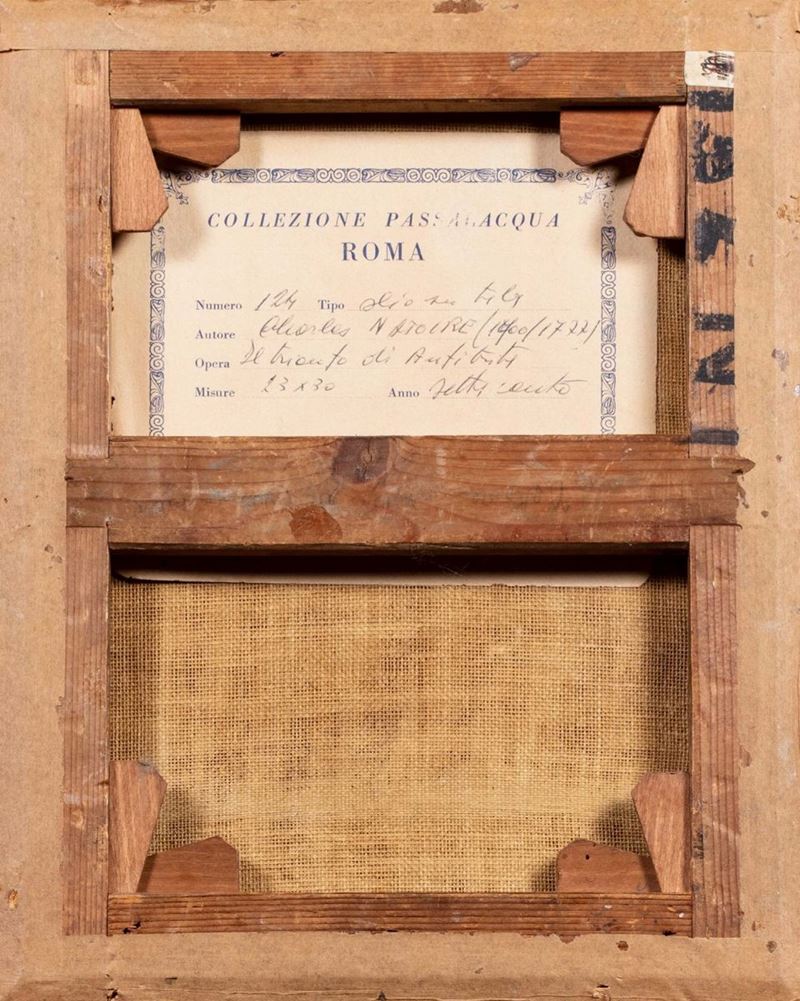 COLLEZIONE PASSALACQUA
ROMA
Numero 124 Tipo olio su tela
Autore Charles NATOIRE (1700/1777)
Opera Il trionfo di Anfitrite
Misure 23x30 Anno settecento